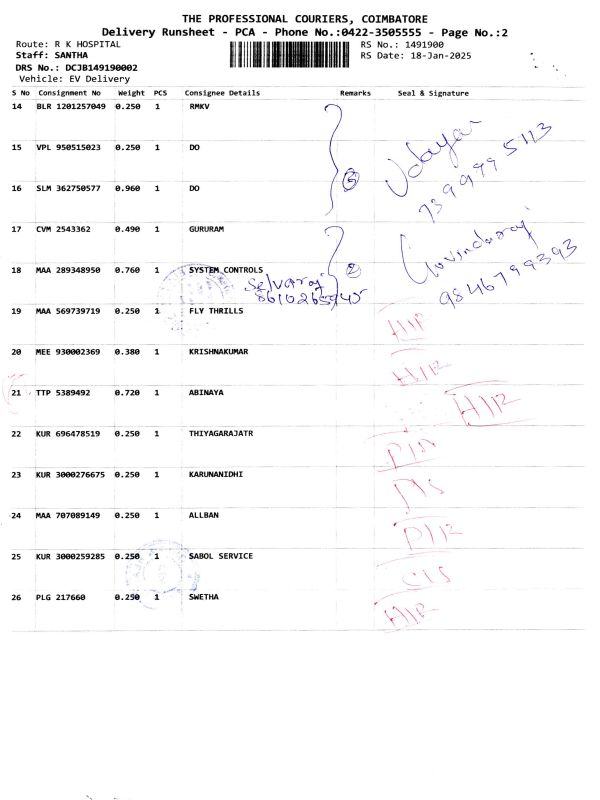 THE PROFESSIONAL COURIERS, COIMBATORE
Delivery Runsheet - PCA - Phone No.:0422-3505555 - Page No.:2
Route: R K HOSPITAL RS No.: 1491900
Staff: SANTHA RS Date: 18-Jan-2025
DRS No.: DCJB149190002
Vehicle: EV Delivery
S No Consignment No Weight PCS Consignee Details Remarks Seal & Signature
14 BLR 1201257049 0.250 1 RMKV
Udaya
15 VPL 950515023 0.250 1 DO
7399995113
16 SLM 362750577 0.960 1 DO
3
17 CVM 2543362 0.490 1 GURURAM
Govindaraj
18 MAA 289348950 0.760 1 SYSTEM CONTROLS
2
Selvaraj
9846799393
19 MAA 569739719 0.250 1 FLY THRILLS
20 MEE 930002369 0.380 1 KRISHNAKUMAR
21 TTP 5389492 0.720 1 ABINAYA
22 KUR 696478519 0.250 1 THIYAGARAJATR
23 KUR 3000276675 0.250 1 KARUNANIDHI
24 MAA 707089149 0.250 1 ALLBAN
25 KUR 3000259285 0.250 1 SABOL SERVICE
26 PLG 217660 0.250 1 SWETHA